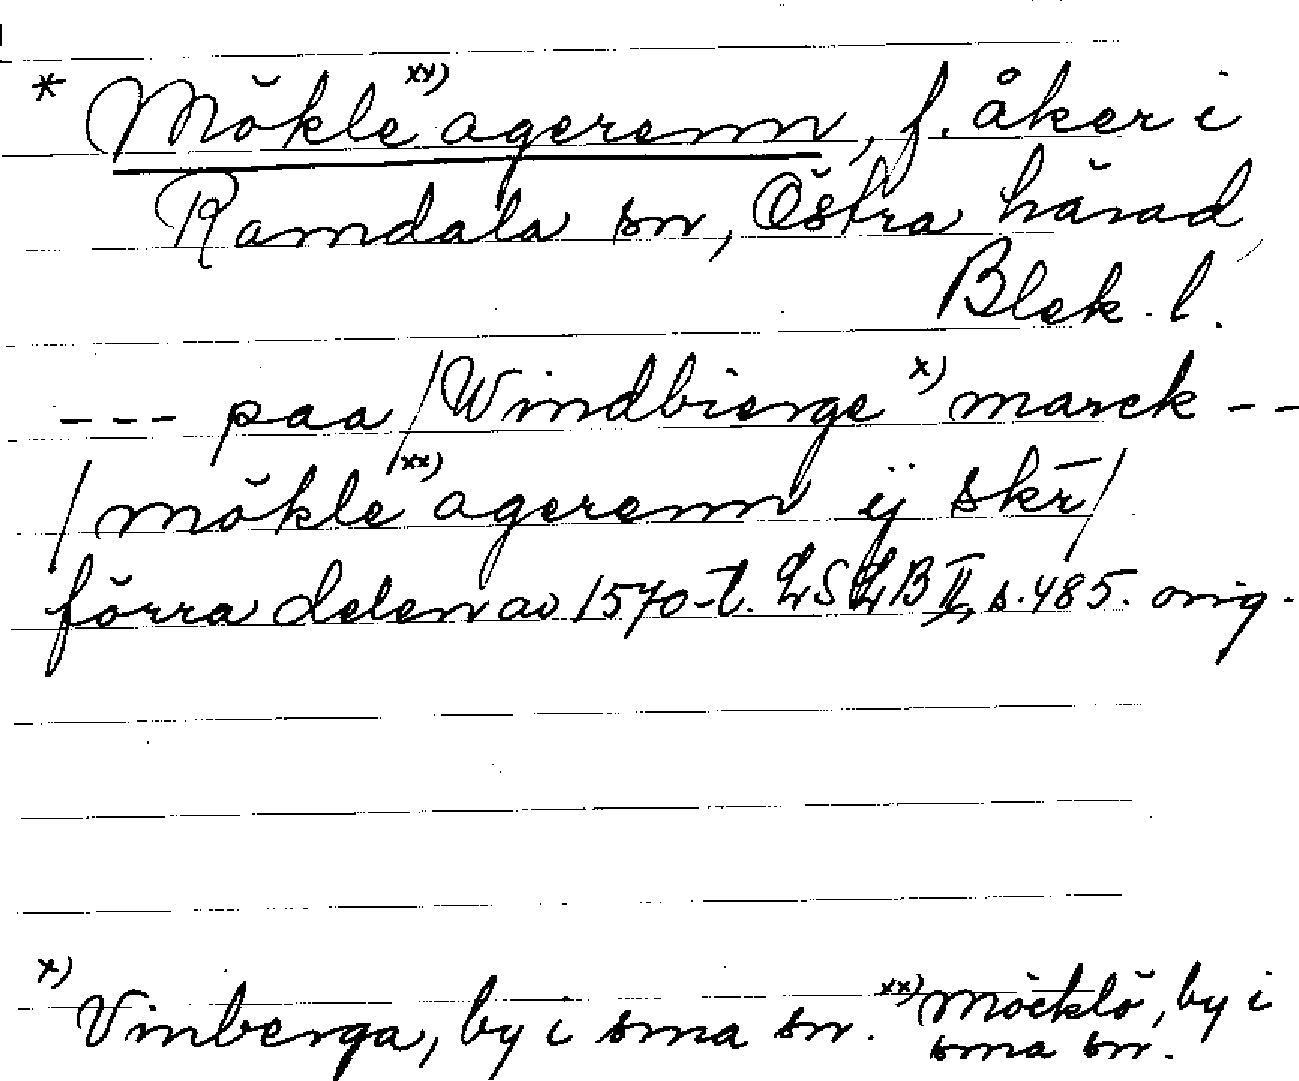 * Mökle xx) agerenn, f. åker i
Ramdala sn, Östra härad,
Blek. l.
--- paa /Windbierge x) marck --
/mökle xx) agerenn ij skr̄/
förra delen av 1570-t. LSLB II, s. 485. orig.
x) Vinberga, by i sma sn. xx) Möcklö, by i
sma sn.